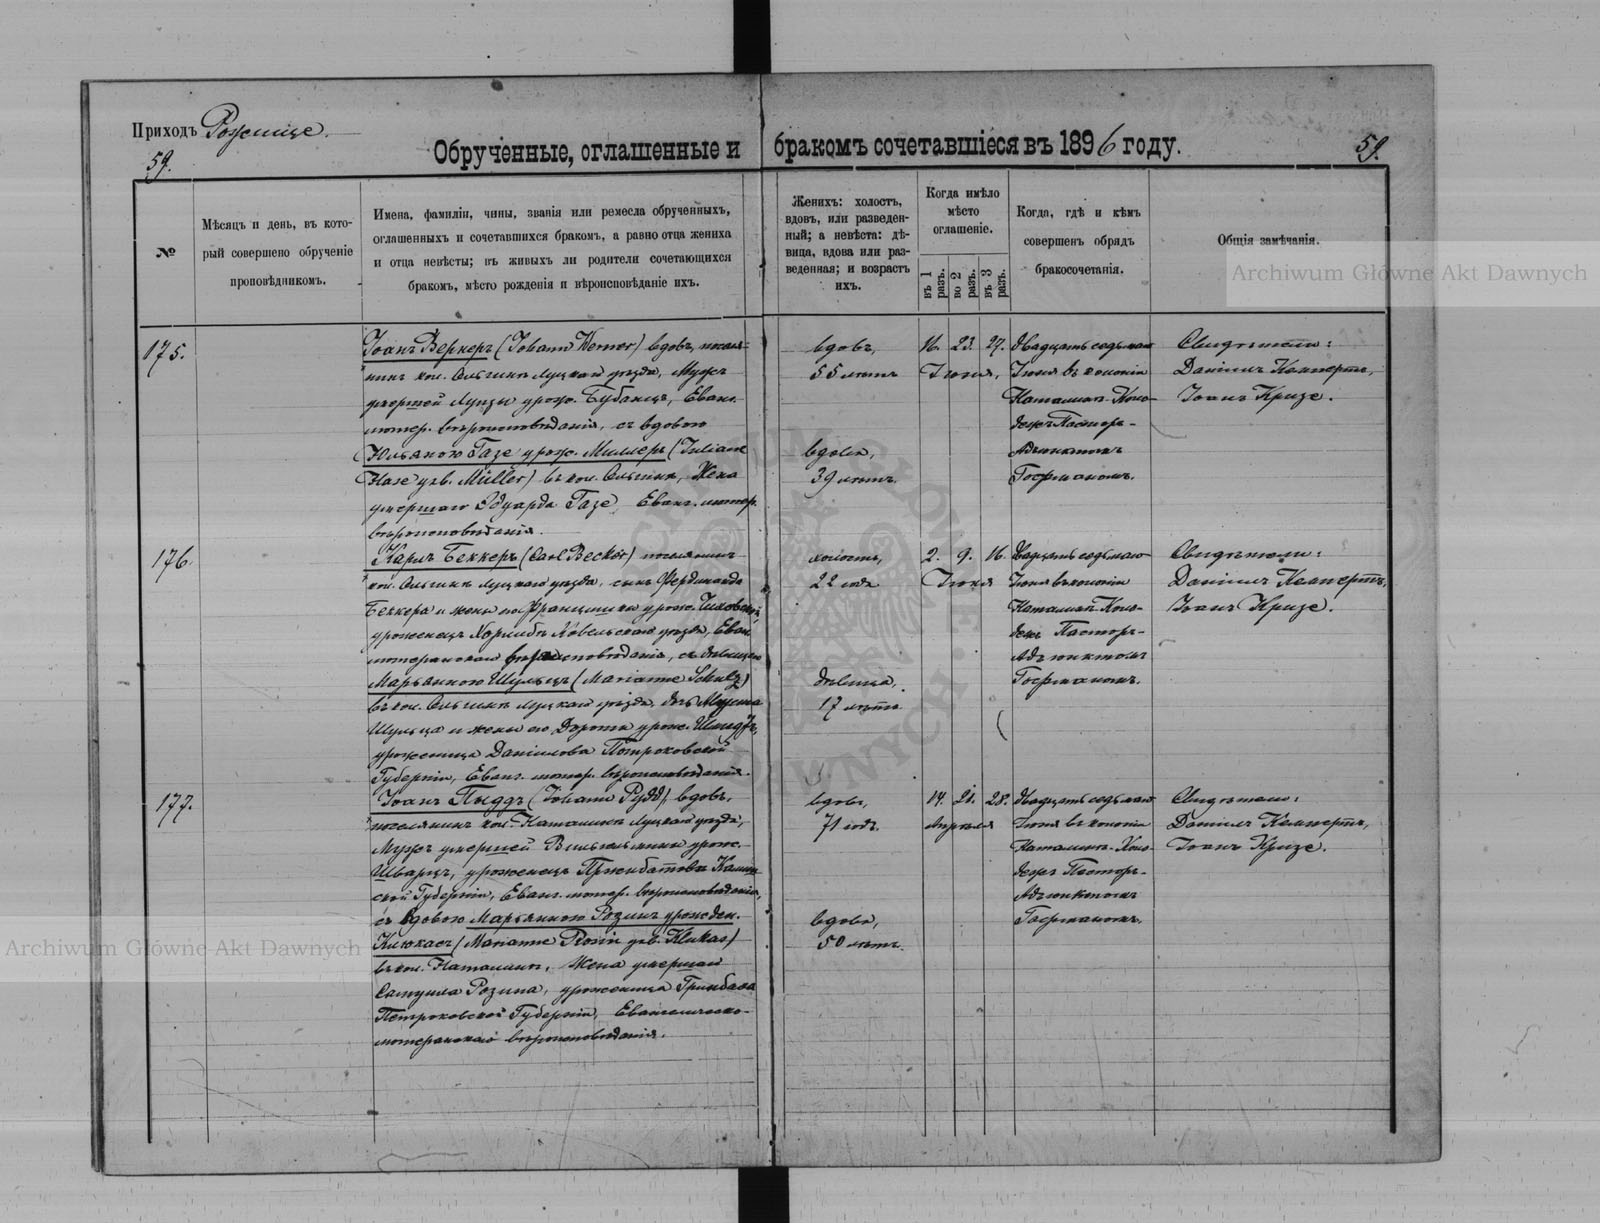 Приходъ Рожище.
59.
Обрученные, оглашенные и бракомъ сочетавшіеся въ 1896 году.
59.
№
Мѣсяцъ и день, въ кото-
рый совершено обрученіе
проповѣдникомъ.
Имена, фамиліи, чины, званія или ремесла обрученныхъ,
оглашенныхъ и сочетавшихся бракомъ, а равно отца жениха
и отца невѣсты; въ живыхъ ли родители сочетающихся
бракомъ, мѣсто рожденія и вѣроисповѣданіе ихъ.
Женихъ: холостъ,
вдовъ, или разведен-
ный; а невѣста: дѣ-
вица, вдова или раз-
веденная; и возрастъ
ихъ.
Когда имѣло
мѣсто
оглашеніе.
въ 1 разъ.
во 2 разъ.
въ 3 разъ.
Когда, гдѣ и кѣмъ
совершенъ обрядъ
бракосочетанія.
Общія замѣчанія.
Archiwum Główne Akt Dawnych
175.
Іоанъ Вернеръ (Johann Werner) вдовъ, посел-
нинъ кол. Ольгинъ Луцкаго уѣзда, Мужъ
умершей Луизы урож. Бубанцъ, Еванг.
лютер. вѣроисповѣданія, съ вдовою
Юльяною Газе урож. Миллеръ (Juliane
Hase geb. Müller) въ кол. Ольгинъ, Жена
умершаго Эдуарда Газе, Еванг. лютер.
вѣроисповѣданія.
вдовъ,
55 лѣтъ
вдова,
39 лѣтъ.
16. 23. 27.
Іюня,
Двадцать седьмаго
Іюня въ колоніи
Наталинъ-Коло-
дежъ Пасторъ-
Адъюнктомъ
Гофманомъ.
Свидѣтели:
Даніилъ Кемпертъ,
Іоанъ Кризе.
176.
Карлъ Беккеръ (Carl Becker) поселянинъ
кол. Ольгинъ Луцкаго уѣзда, сынъ Фердинанда
Беккера и жены его Францишки урож.
уроженецъ Ковельскаго уѣзда, Еван.
лютеранскаго вѣроисповѣданія, съ дѣвицею
Марьянною Шульцъ (Marianne Schulz)
въ кол. Ольгинъ Луцкаго уѣзда, дочь
Шульца и жены его Дороты урож. Шмидтъ,
уроженица Даніилова Петроковской
Губерніи, Еванг. лютер. вѣроисповѣданія.
холостъ,
22 года
дѣвица,
17 лѣтъ
2. 9. 16.
Іюня
Двадцать седьмаго
Іюня въ колоніи
Наталинъ-Коло-
дежъ Пасторъ-
Адъюнктомъ
Гофманомъ.
Свидѣтели:
Даніилъ Кемпертъ,
Іоанъ Кризе.
177.
Іоанъ Пыддъ (Johann Pydd), вдовъ,
поселянинъ кол. Наталинъ Луцкаго уѣзда,
Мужъ умершей Вильгельмины урож.
Шварцъ, уроженецъ
ской Губерніи, Еванг. лютер. вѣроисповѣданія,
съ вдовою Марьянною Розинъ урожден.
Клюкасъ (Marianne Rosin geb. Klukas)
въ кол. Наталинъ, Жена умершаго
Самуила Розина, уроженица Гринбаха
Петроковской Губерніи, Евангелическо-
лютеранскаго вѣроисповѣданія.
вдовъ,
71 года.
вдова,
50 лѣтъ.
14. 21. 28.
Апрѣля
Двадцать седьмаго
Іюня въ колоніи
Наталинъ-Коло-
дежъ Пасторъ-
Адъюнктомъ
Гофманомъ.
Свидѣтели:
Даніилъ Кемпертъ,
Іоанъ Кризе.
Archiwum Główne Akt Dawnych